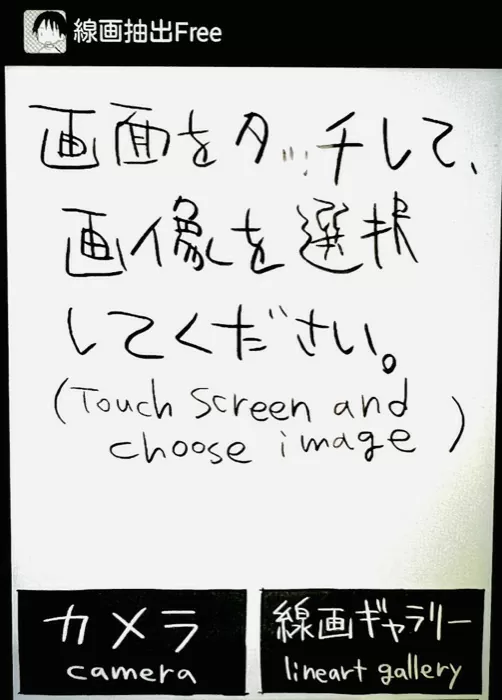 線画抽出Free
画面をタッチして、
画像を選択
してください。
(Touch Screen and
choose image)
カメラ
camera
線画ギャラリー
lineart gallery